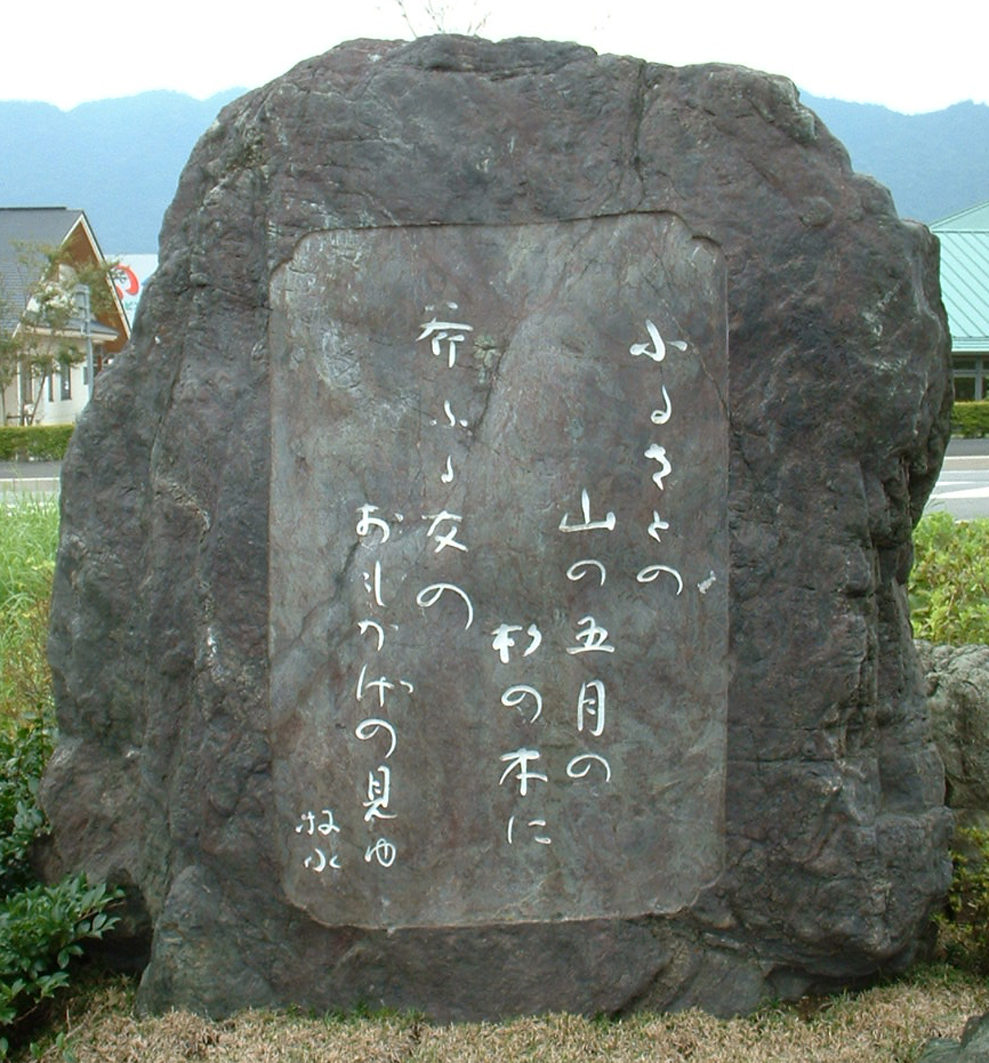 ふるさとの
山の五月の
杉の木に
斧ふる友の
おもかげの見ゆ
牧水